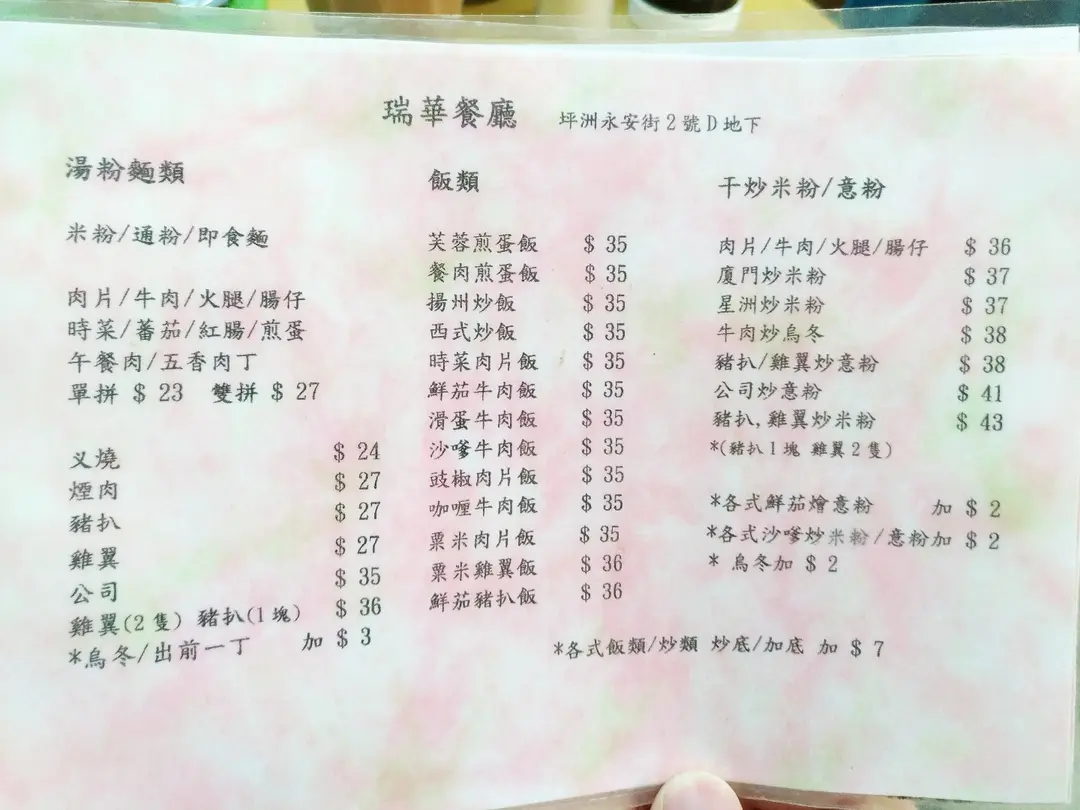 瑞華餐廳 坪洲永安街2號D地下
湯粉麵類
米粉/通粉/即食麵
肉片/牛肉/火腿/腸仔
時菜/蕃茄/紅腸/煎蛋
午餐肉/五香肉丁
單拼 $ 23 雙拼 $ 27
叉燒 $ 24
煙肉 $ 27
豬扒 $ 27
雞翼 $ 27
公司 $ 35
雞翼(2隻) 豬扒(1塊) $ 36
*烏冬/出前一丁 加 $ 3
飯類
芙蓉煎蛋飯 $ 35
餐肉煎蛋飯 $ 35
揚州炒飯 $ 35
西式炒飯 $ 35
時菜肉片飯 $ 35
鮮茄牛肉飯 $ 35
滑蛋牛肉飯 $ 35
沙嗲牛肉飯 $ 35
豉椒肉片飯 $ 35
咖喱牛肉飯 $ 35
粟米肉片飯 $ 35
粟米雞翼飯 $ 36
鮮茄豬扒飯 $ 36
干炒米粉/意粉
肉片/牛肉/火腿/腸仔 $ 36
廈門炒米粉 $ 37
星洲炒米粉 $ 37
牛肉炒烏冬 $ 38
豬扒/雞翼炒意粉 $ 38
公司炒意粉 $ 41
豬扒,雞翼炒米粉 $ 43
*(豬扒1塊 雞翼2隻)
*各式鮮茄燴意粉 加 $ 2
*各式沙嗲炒米粉/意粉加 $ 2
* 烏冬加 $ 2
*各式飯類/炒類 炒底/加底 加 $ 7